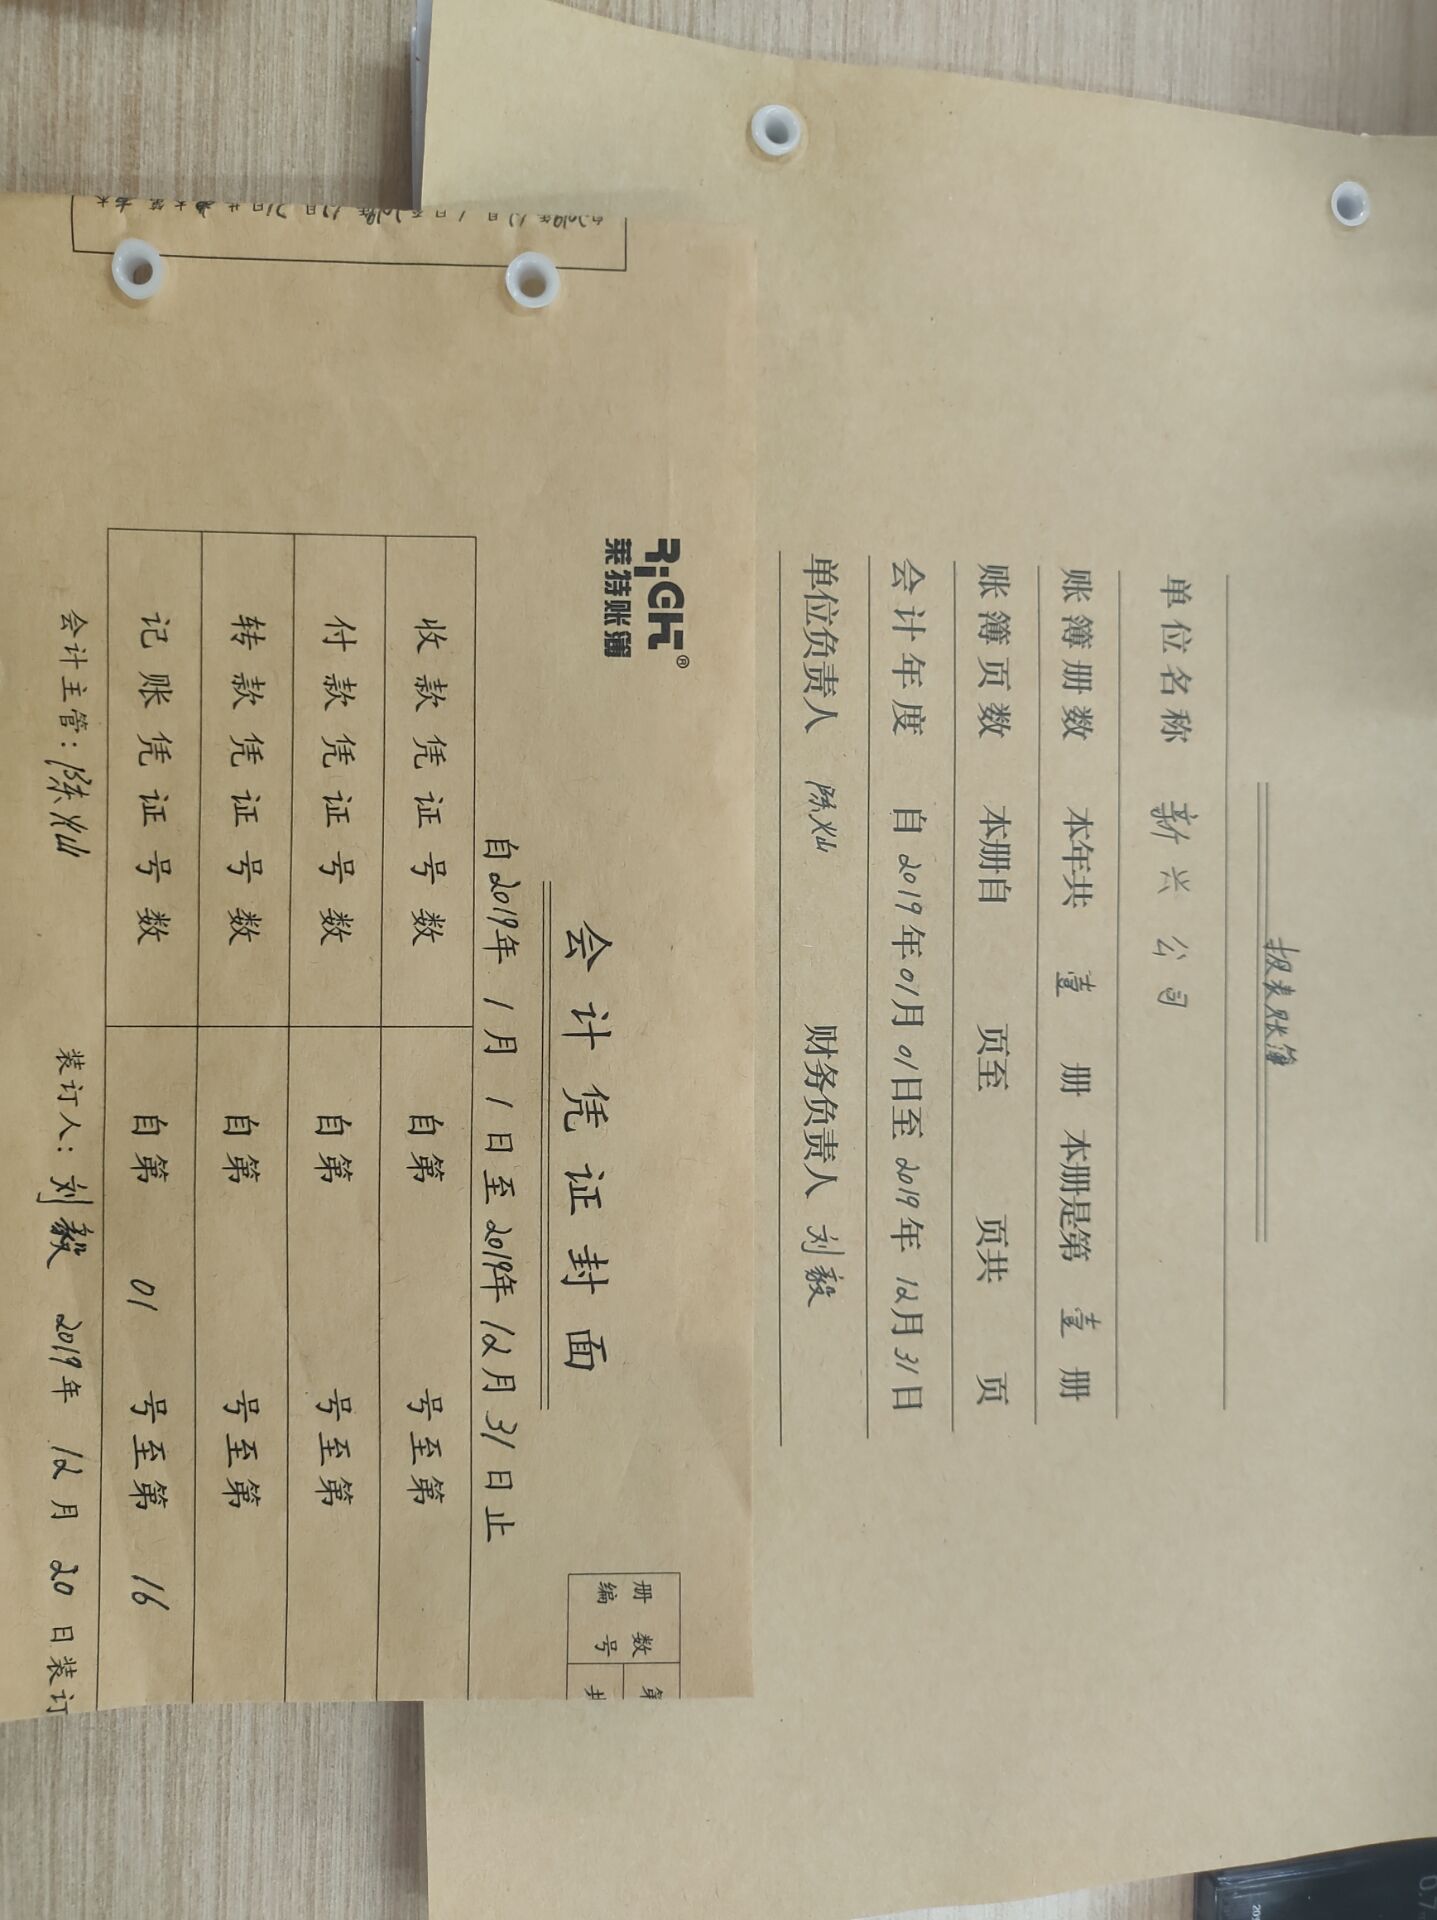 报表账簿
单位名称 新兴公司
账簿册数 本年共 壹 册 本册是第 壹 册
账簿页数 本册自 页至 页共 页
会计年度 自2019年01月01日至2019年12月31日
单位负责人 陈灿 财务负责人 刘毅
RiGHt®
莱特账簿
会计凭证封面
册数 第
编号 共
自2019年1月1日至2019年12月31日止
收款凭证号数 自第 号至第
付款凭证号数 自第 号至第
转款凭证号数 自第 号至第
记账凭证号数 自第 01 号至第 16
会计主管:陈灿 装订人:刘毅 2019年12月20日装订